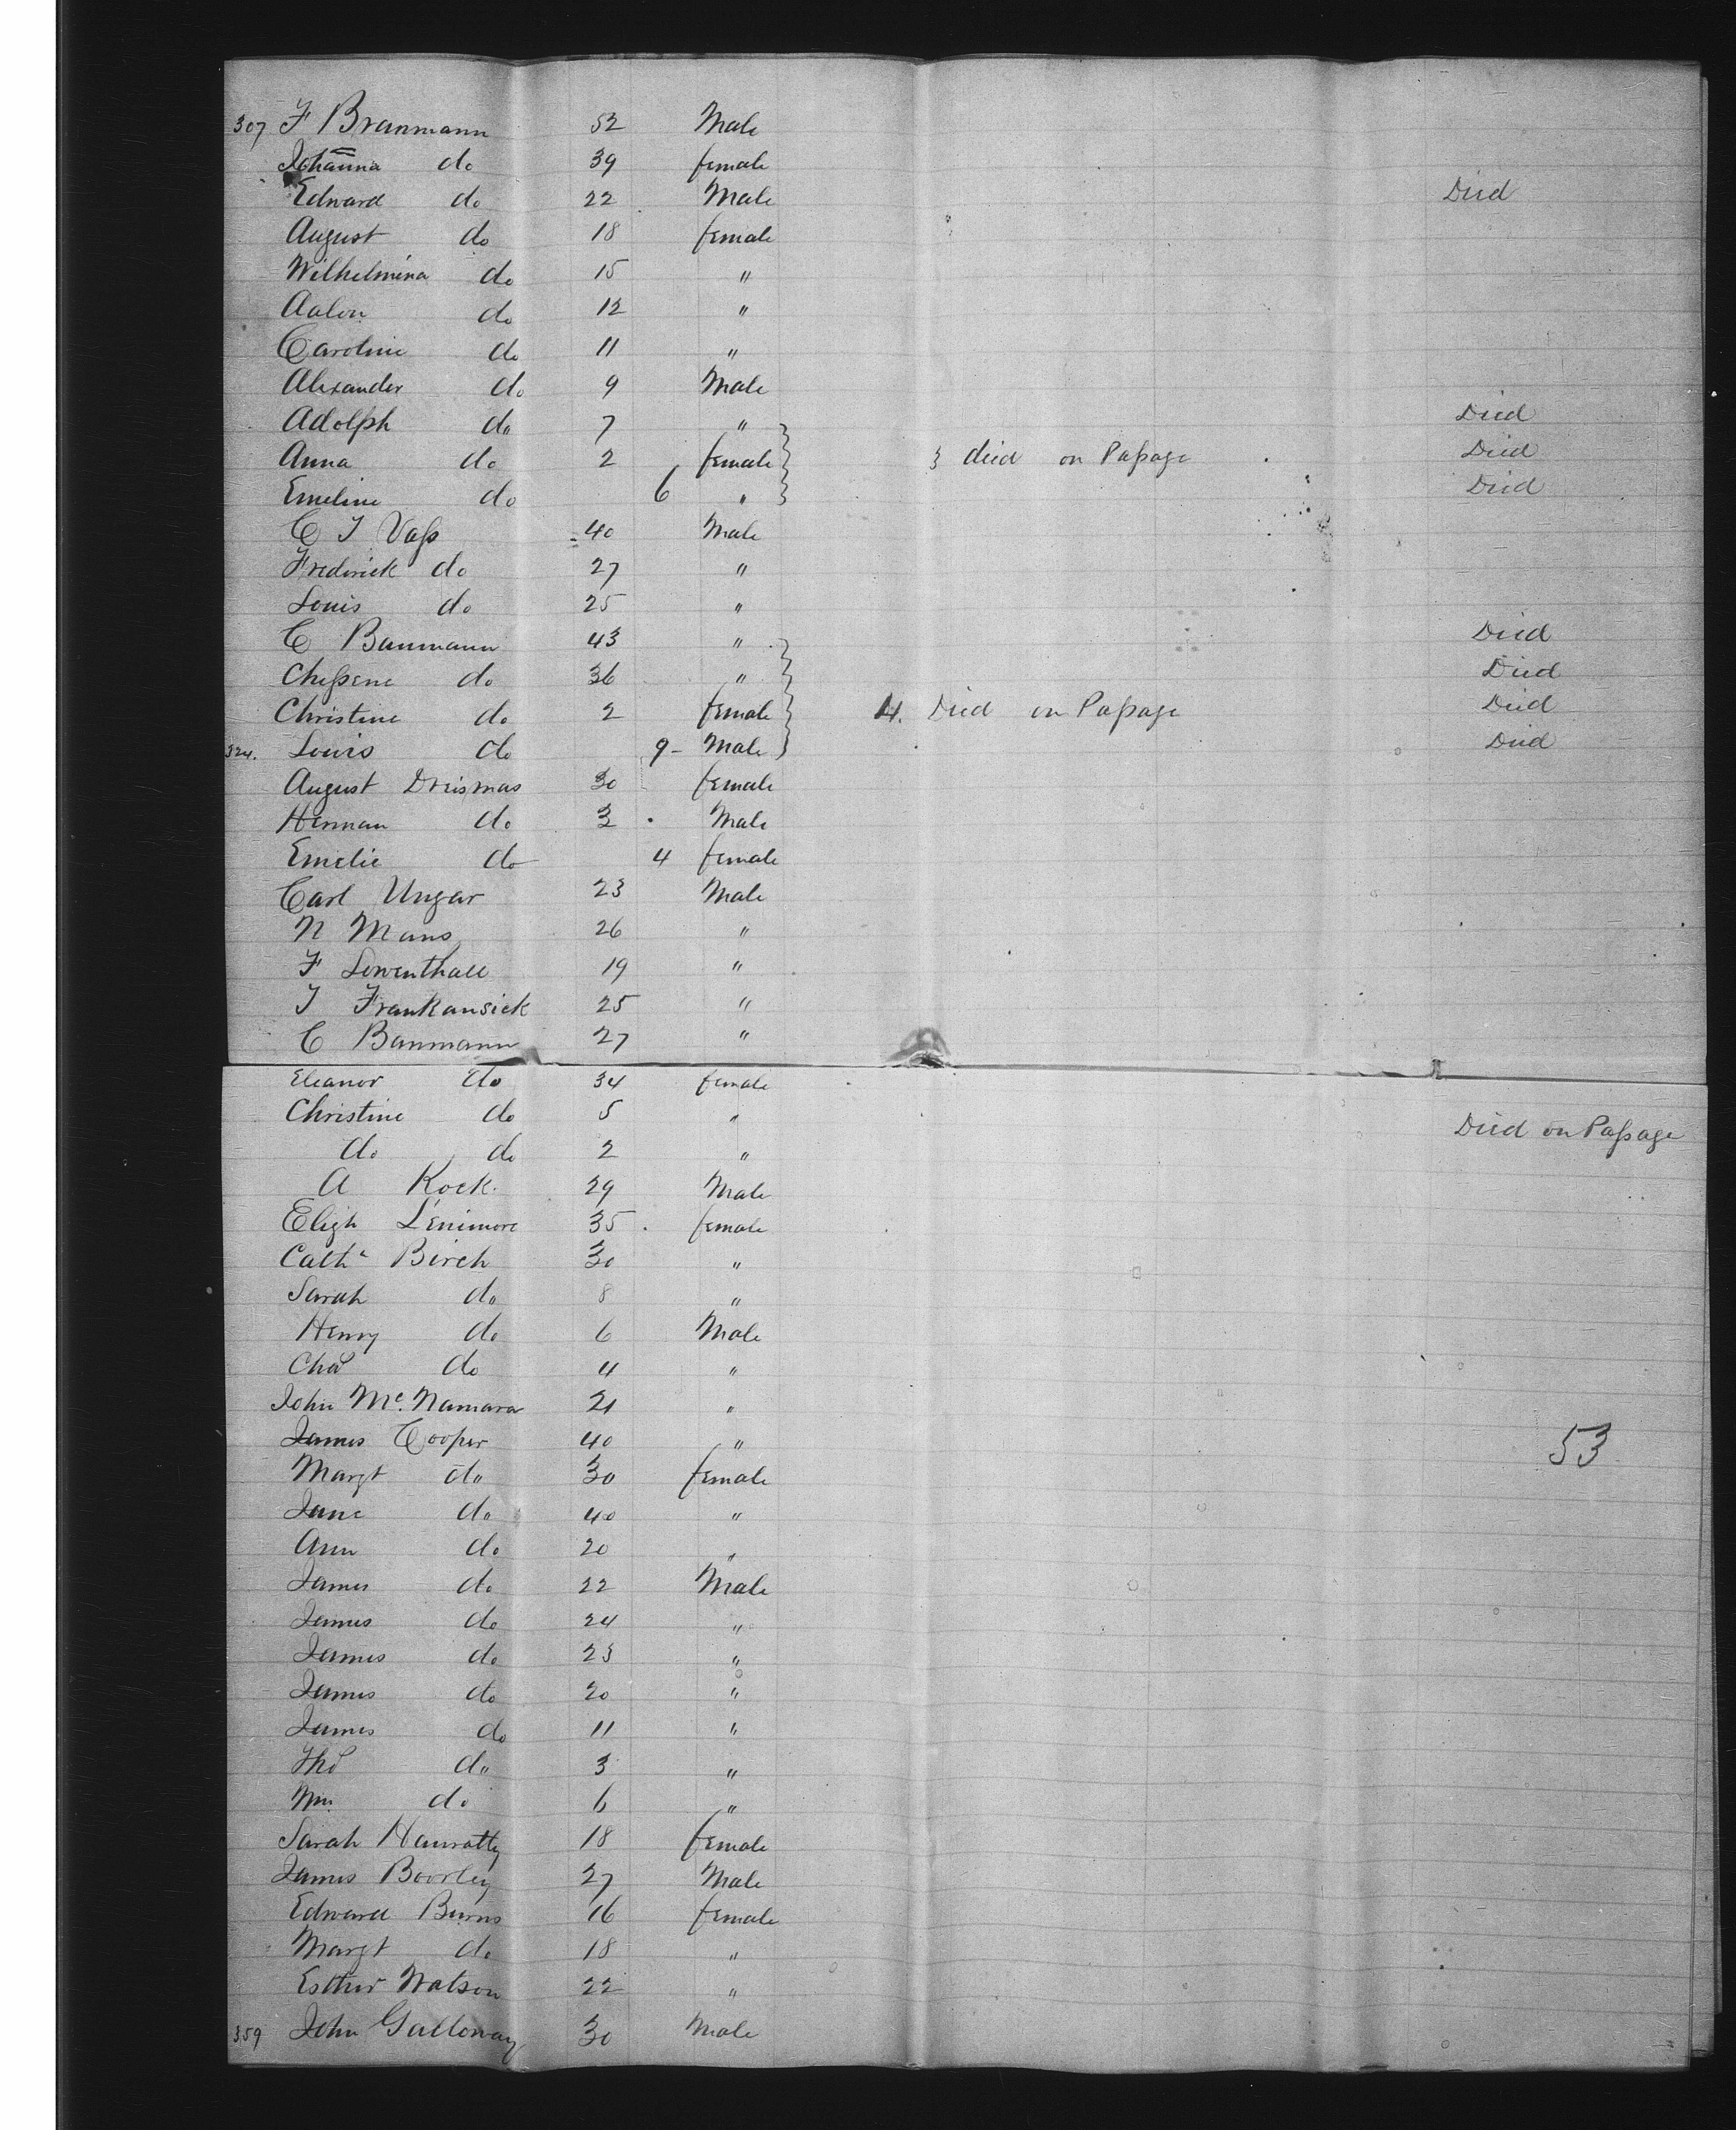 307 F Branmann 52 Male
Johanna do 39 female
Edward do 22 Male Died
August do 18 female
Wilhelmina do 15 "
Aalon do 12 "
Caroline do 11 "
Alexander do 9 Male
Adolph do 7 " Died
Anna do 2 female } died on Paſsage Died
Emeline do 6 " Died
C J Vaſs 40 Male
Frederick do 27 "
Louis do 25 "
C Banmann 43 " Died
Cheſsene do 36 " Died
Christine do 2 female 4. Died on Paſsage Died
324. Louis do 9 - Male Died
August Dreismas 30 female
Herman do 3 Male
Emelie do 4 female
Carl Ungar 23 Male
N Mans 26 "
F Lowenthall 19 "
J Frankansick 25 "
C Banmann 27 "
Eleanor do 34 female
Christine do 5 "
do do 2 " Died on Paſsage
A Kock 29 Male
Eligh L'Enimore 35 female
Cathe Birch 30 "
Sarah do 8 "
Henry do 6 Male
Chas do 4 "
John Mc.Namara 21 "
James Cooper 40 " 53
Margt do 30 female
Jane do 40 "
Ann do 20 "
James do 22 Male
James do 24 "
James do 23 "
James do 20 "
James do 11 "
Thos do 3 "
Wm do 6 "
Sarah Hanratty 18 female
James Boorley 27 Male
Edward Burns 16 female
Margt do 18 "
Esther Watson 22 "
359 John Galloway 30 Male